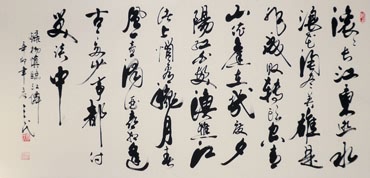 滚々长江東逝水
浪花淘尽英雄是
非成败转头空青
山依旧在几度夕
陽红白发渔樵江
渚上惯看秋月春
風一壶浊酒喜相逢
古今多少事都付
笑谈中
錄杨慎临江仙
辛卯年